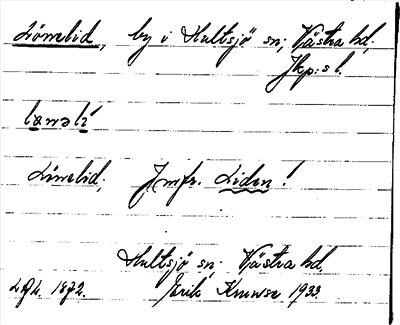 Lömelid, by i Hultsjö sn, Västra hd,
Jkp:s l.
Lömelid. Jmfr. Liden!
Hultsjö sn, Västra hd,
1872. Erik 1933.